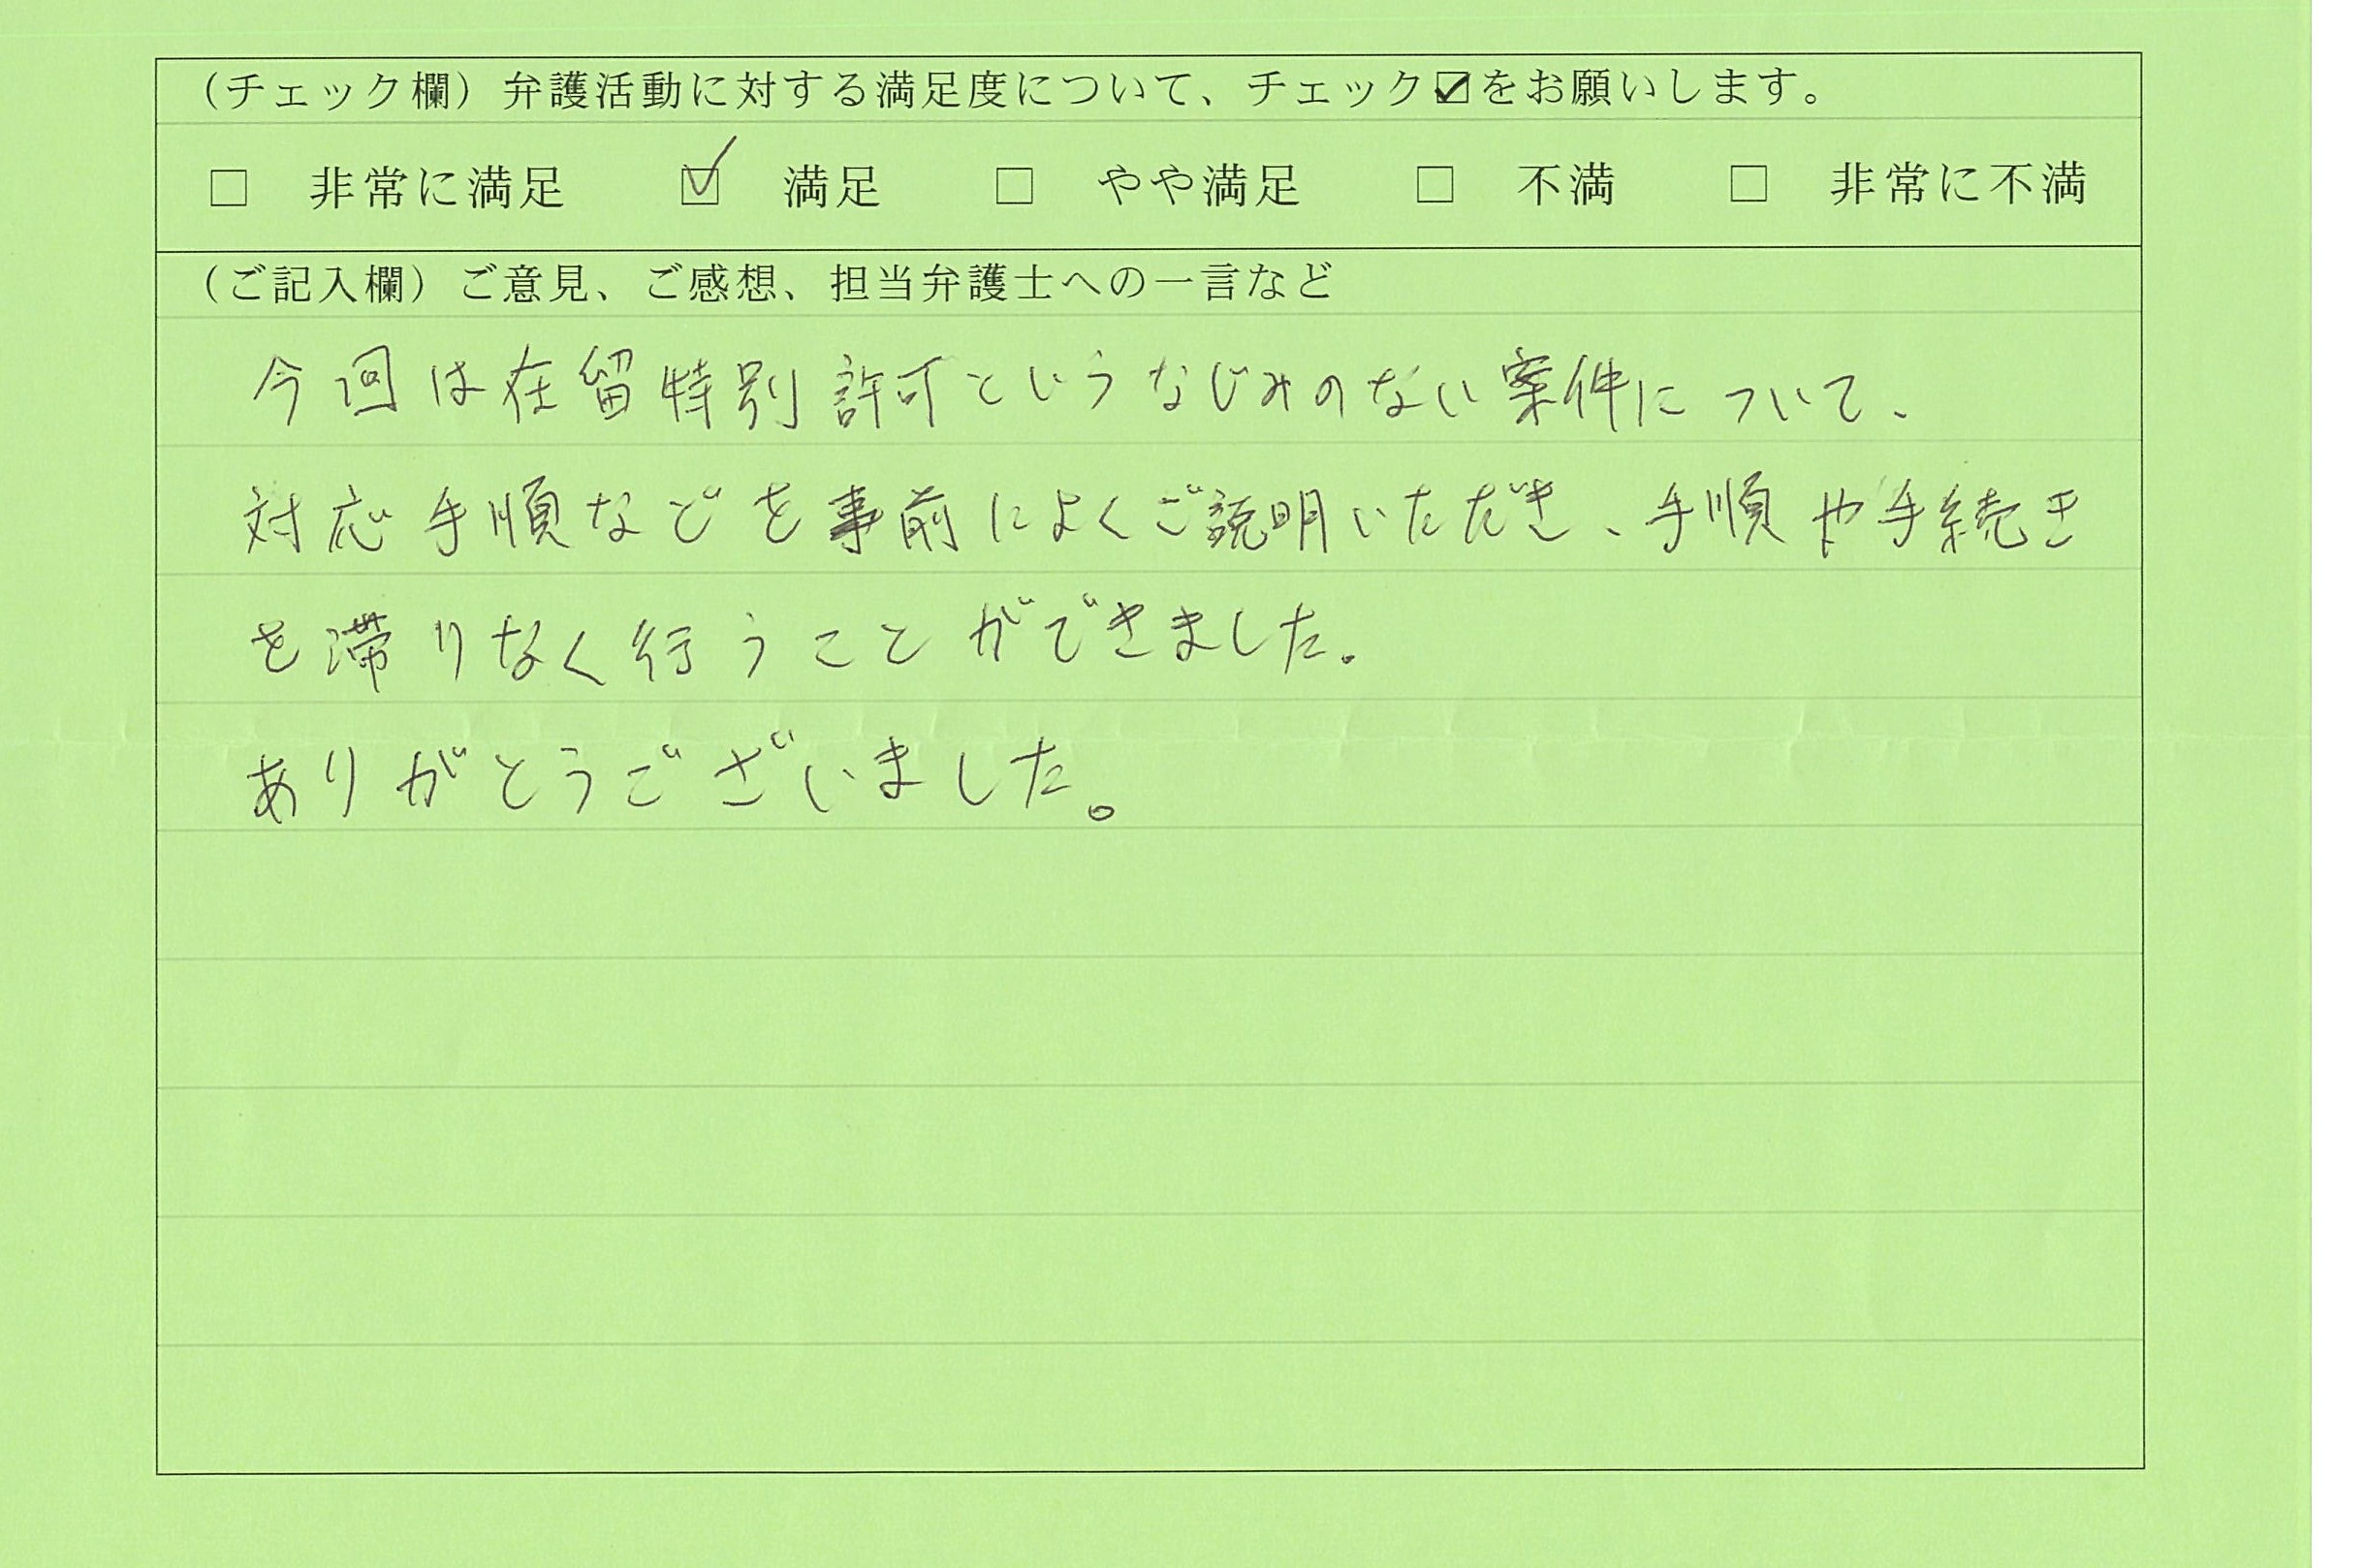 (チェック欄)弁護活動に対する満足度について、チェック☑をお願いします。
□ 非常に満足 ☑ 満足 □ やや満足 □ 不満 □ 非常に不満
(ご記入欄)ご意見、ご感想、担当弁護士への一言など
今回は在留特別許可というなじみのない案件について、
対応手順などを事前によくご説明いただき、手順や手続き
を滞りなく行うことができました。
ありがとうございました。